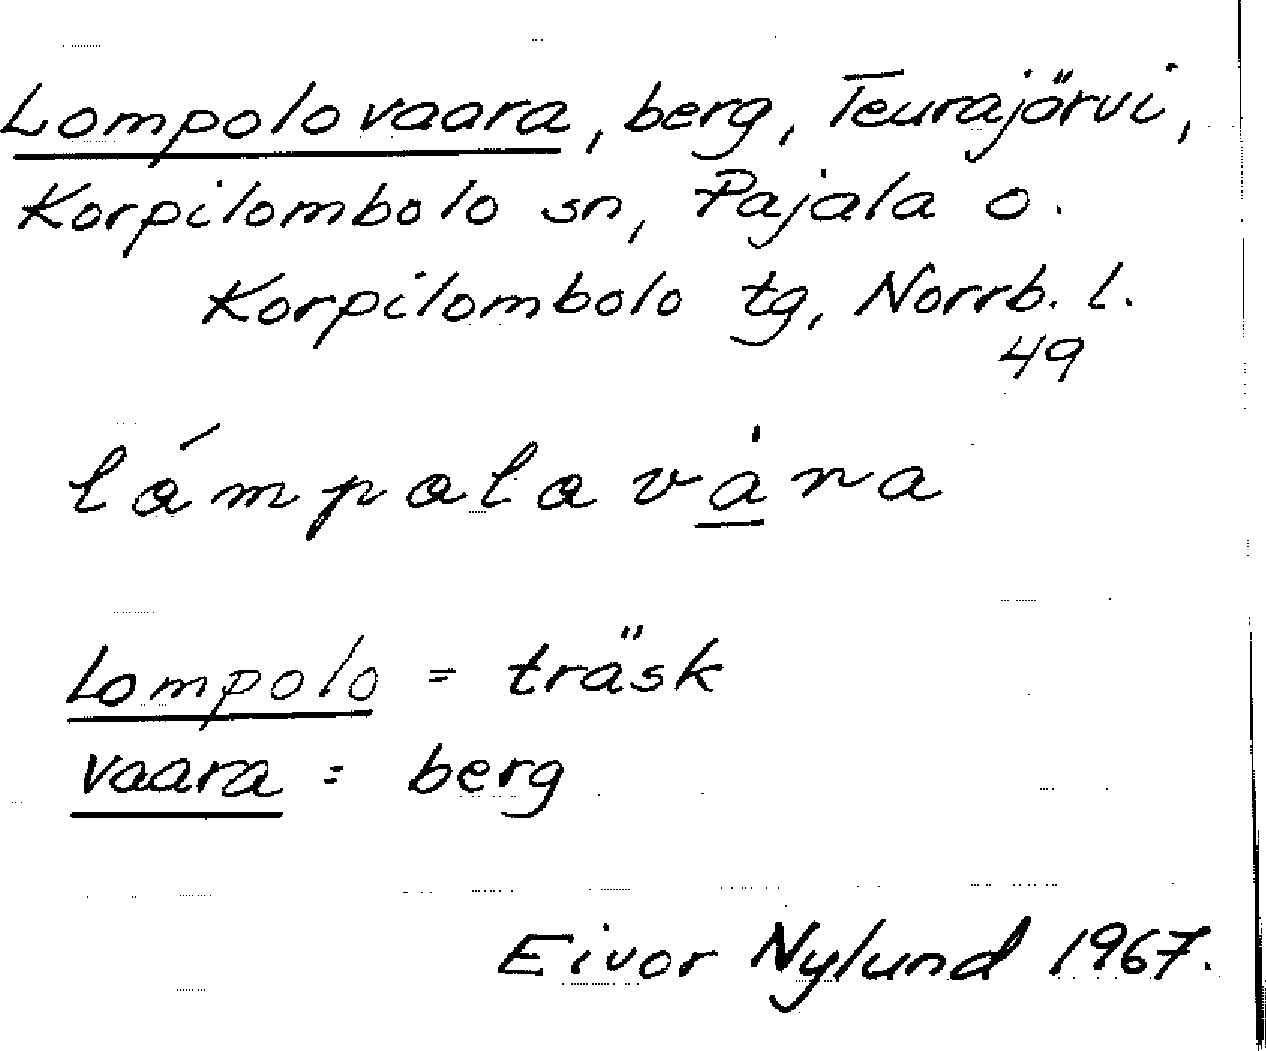 Lompolovaara, berg, Teurajärvi,
Korpilombolo sn, Pajala o.
Korpilombolo tg, Norrb. l.
49
lámpalavàra
Lompolo = träsk
vaara = berg
Eivor Nylund 1967.